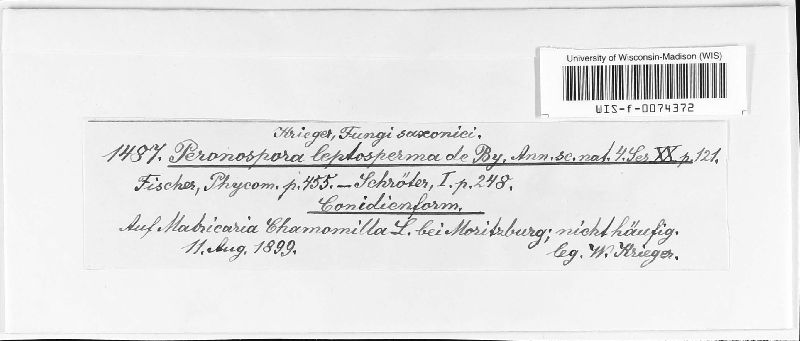 University of Wisconsin-Madison (WIS)
WIS-f-0074372
Krieger, Fungi saxonici.
1487. Peronospora leptosperma de By, Ann. sc. nat. 4. Ser. XX p. 121.
Fischer, Phycom. p. 455. — Schröter, I. p. 248.
Conidienform.
Auf Matricaria Chamomilla L. bei Moritzburg; nicht häufig.
11. Aug. 1899.
leg. W. Krieger.